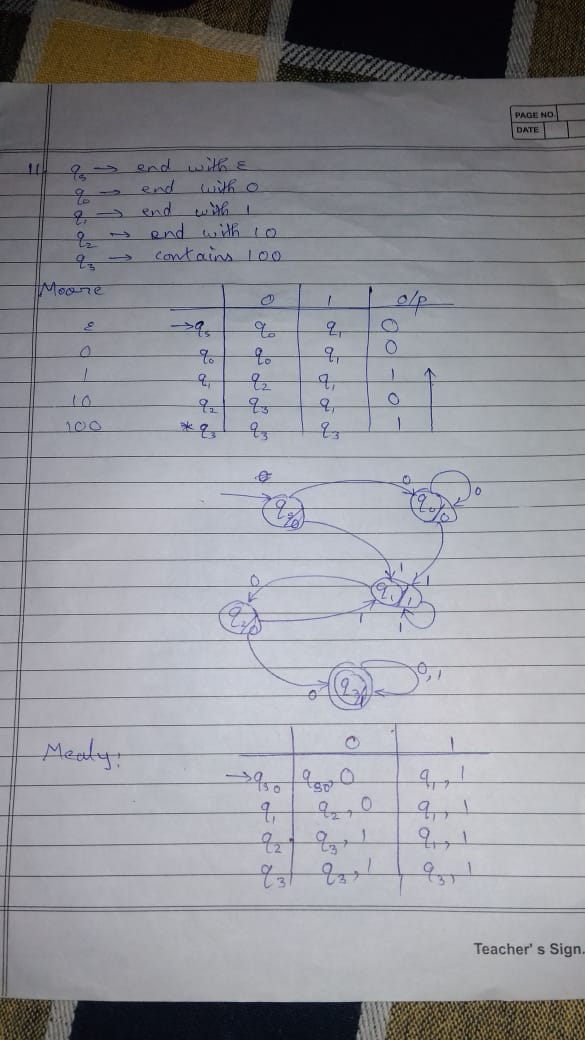 PAGE NO.
DATE
11 qs → end with ε
q0 → end with 0
q1 → end with 1
q2 → end with 10
q3 → contains 100
Moore
0 1 o/p
ε →qs q0 q1 0
0 q0 q0 q1 0
1 q1 q2 q1 1
10 q2 q3 q1 0
100 *q3 q3 q3 1
0 0
qs/0 q0/0
1 1
0 q1/1
q2/0 1 1
0 q3/1 0,1
Mealy:
0 1
→qs0 qs0, 0 q1, 1
q1 q2, 0 q1, 1
q2 q3, 1 q1, 1
q3 q3, 1 q3, 1
Teacher's Sign.